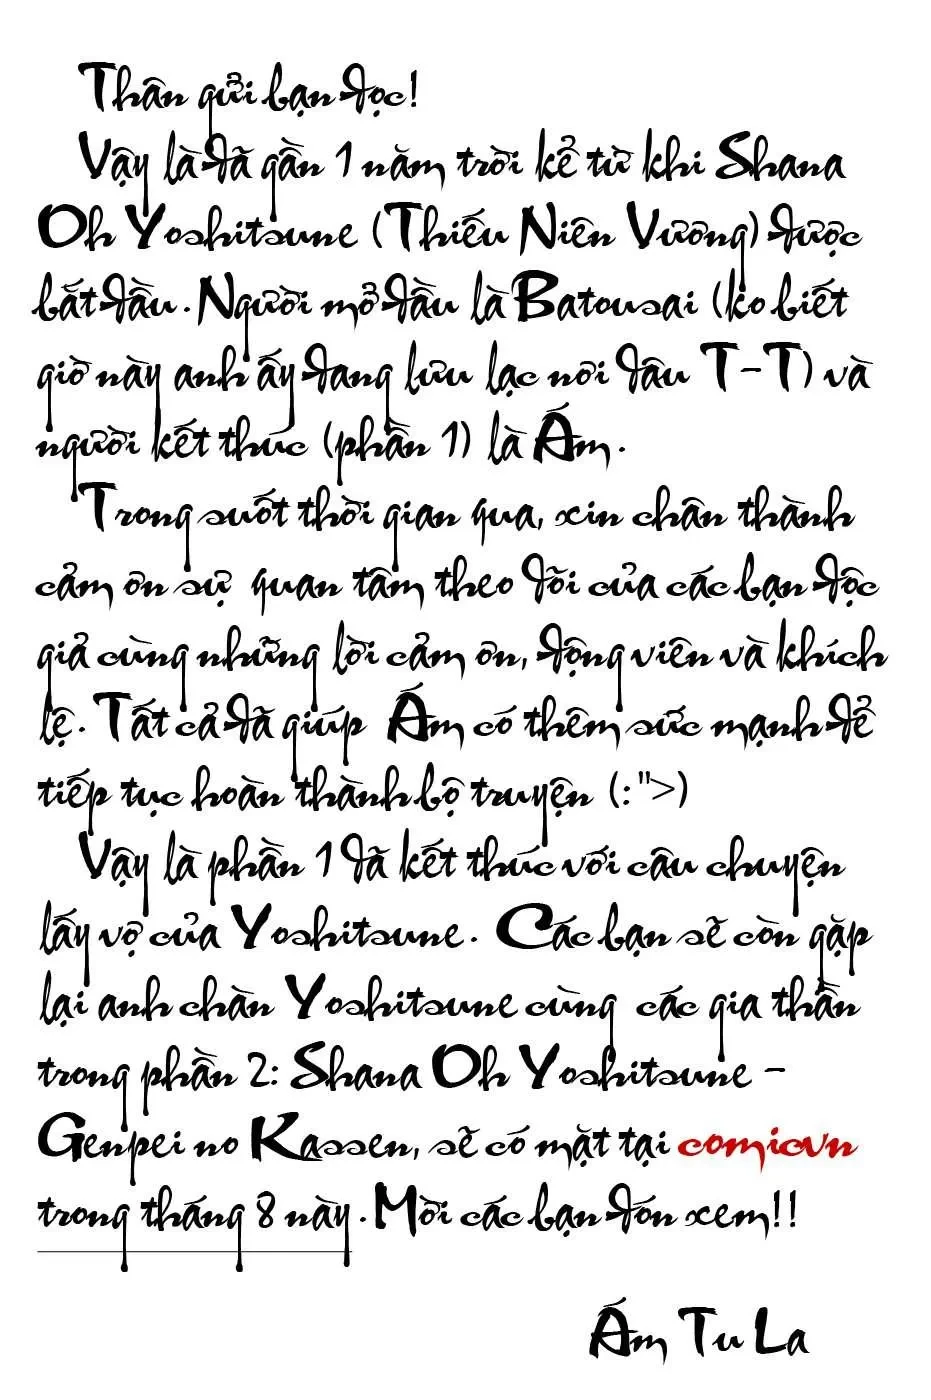 Thân gửi bạn đọc!
Vậy là đã gần 1 năm trời kể từ khi Shana
Oh Yoshitsune (Thiếu Niên Vương) được
bắt đầu. Người mở đầu là Batousai (ko biết
giờ này anh ấy đang lưu lạc nơi đâu T-T) và
người kết thúc (phần 1) là Ấm.
Trong suốt thời gian qua, xin chân thành
cảm ơn sự quan tâm theo dõi của các bạn độc
giả cùng những lời cảm ơn, động viên và khích
lệ. Tất cả đã giúp Ấm có thêm sức mạnh để
tiếp tục hoàn thành bộ truyện (:">)
Vậy là phần 1 đã kết thúc với câu chuyện
lấy vợ của Yoshitsune. Các bạn sẽ còn gặp
lại anh chàn Yoshitsune cùng các gia thần
trong phần 2: Shana Oh Yoshitsune -
Genpei no Kassen, sẽ có mặt tại comicvn
trong tháng 8 này. Mời các bạn đón xem!!
Ấm Tu La